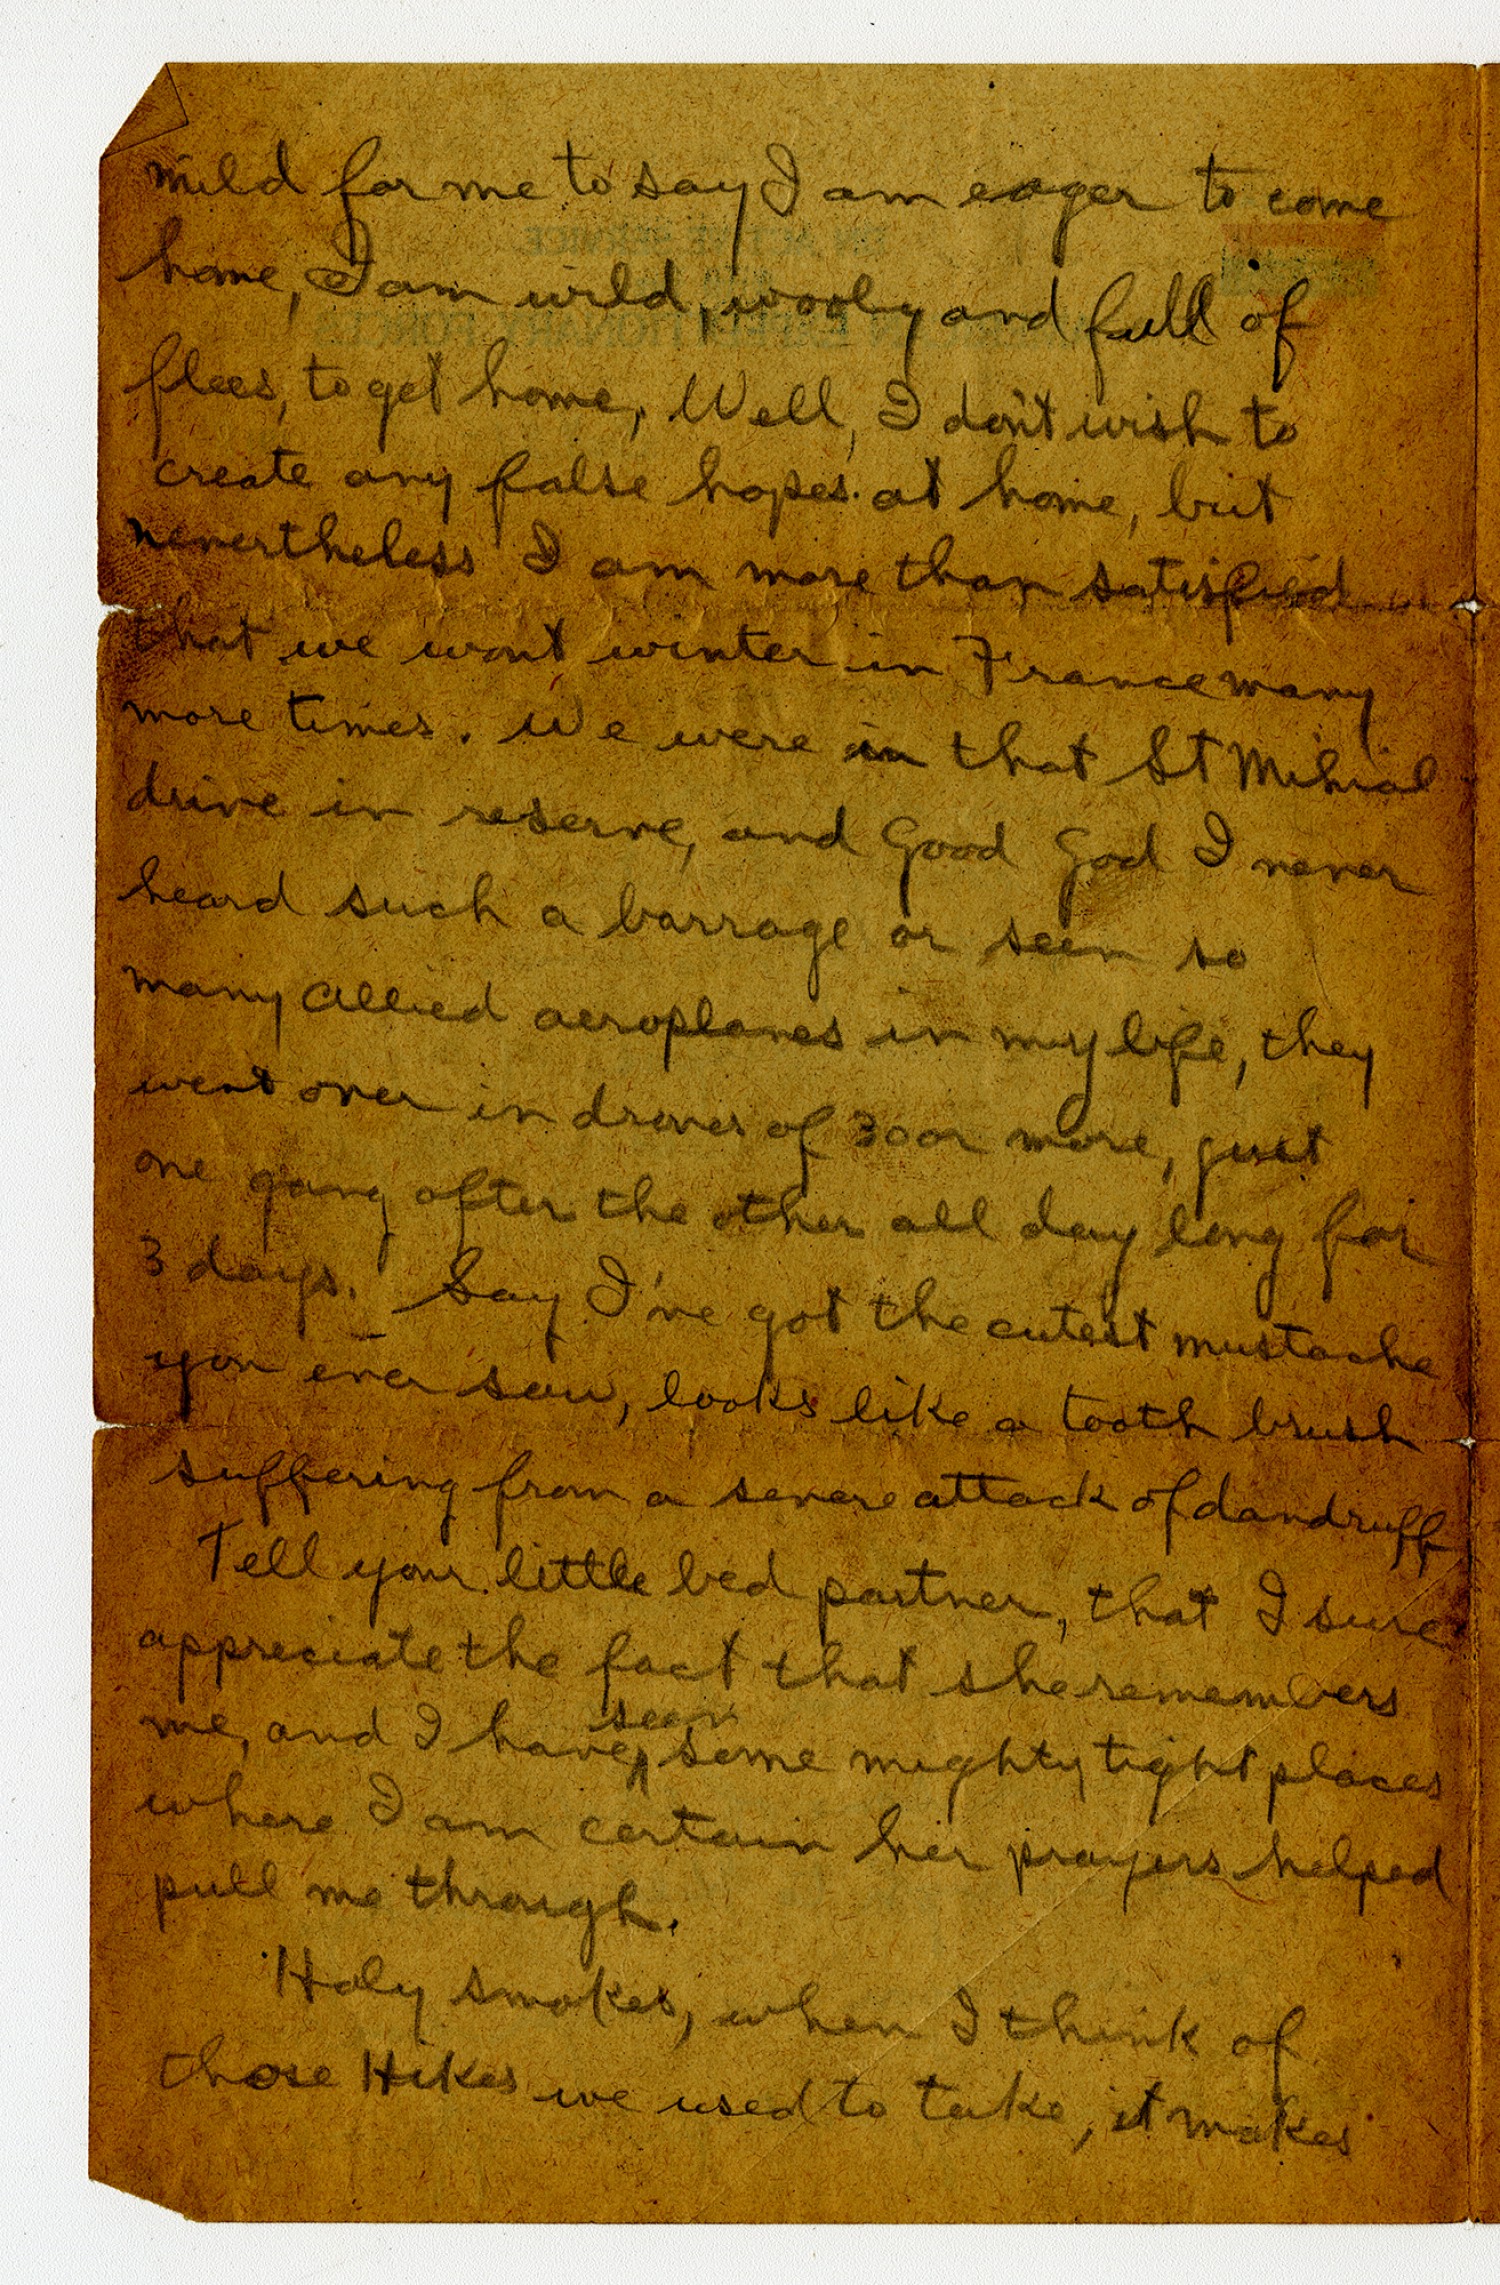 mild for me to say I am eager to come
home, I am wild, wooly and full of
flees, to get home, Well, I don't wish to
create any false hopes at home, but
nevertheless I am more than satisfied
that we wont winter in France many
more times. We were in that St Mihial
drive in reserve, and Good God I never
heard such a barrage or seen so
many allied aeroplanes in my life, they
went over in droves of 30 or more, just
one gang after the other all day long for
3 days. Say I've got the cutest mustache
you ever saw, looks like a tooth brush
suffering from a severe attack of dandruff
Tell your little bed partner, that I sure
appreciate the fact that she remembers
me, and I have seen some mighty tight places
where I am certain her prayers helped
pull me through.
Holy smokes, when I think of
those Hikes we used to take, it makes